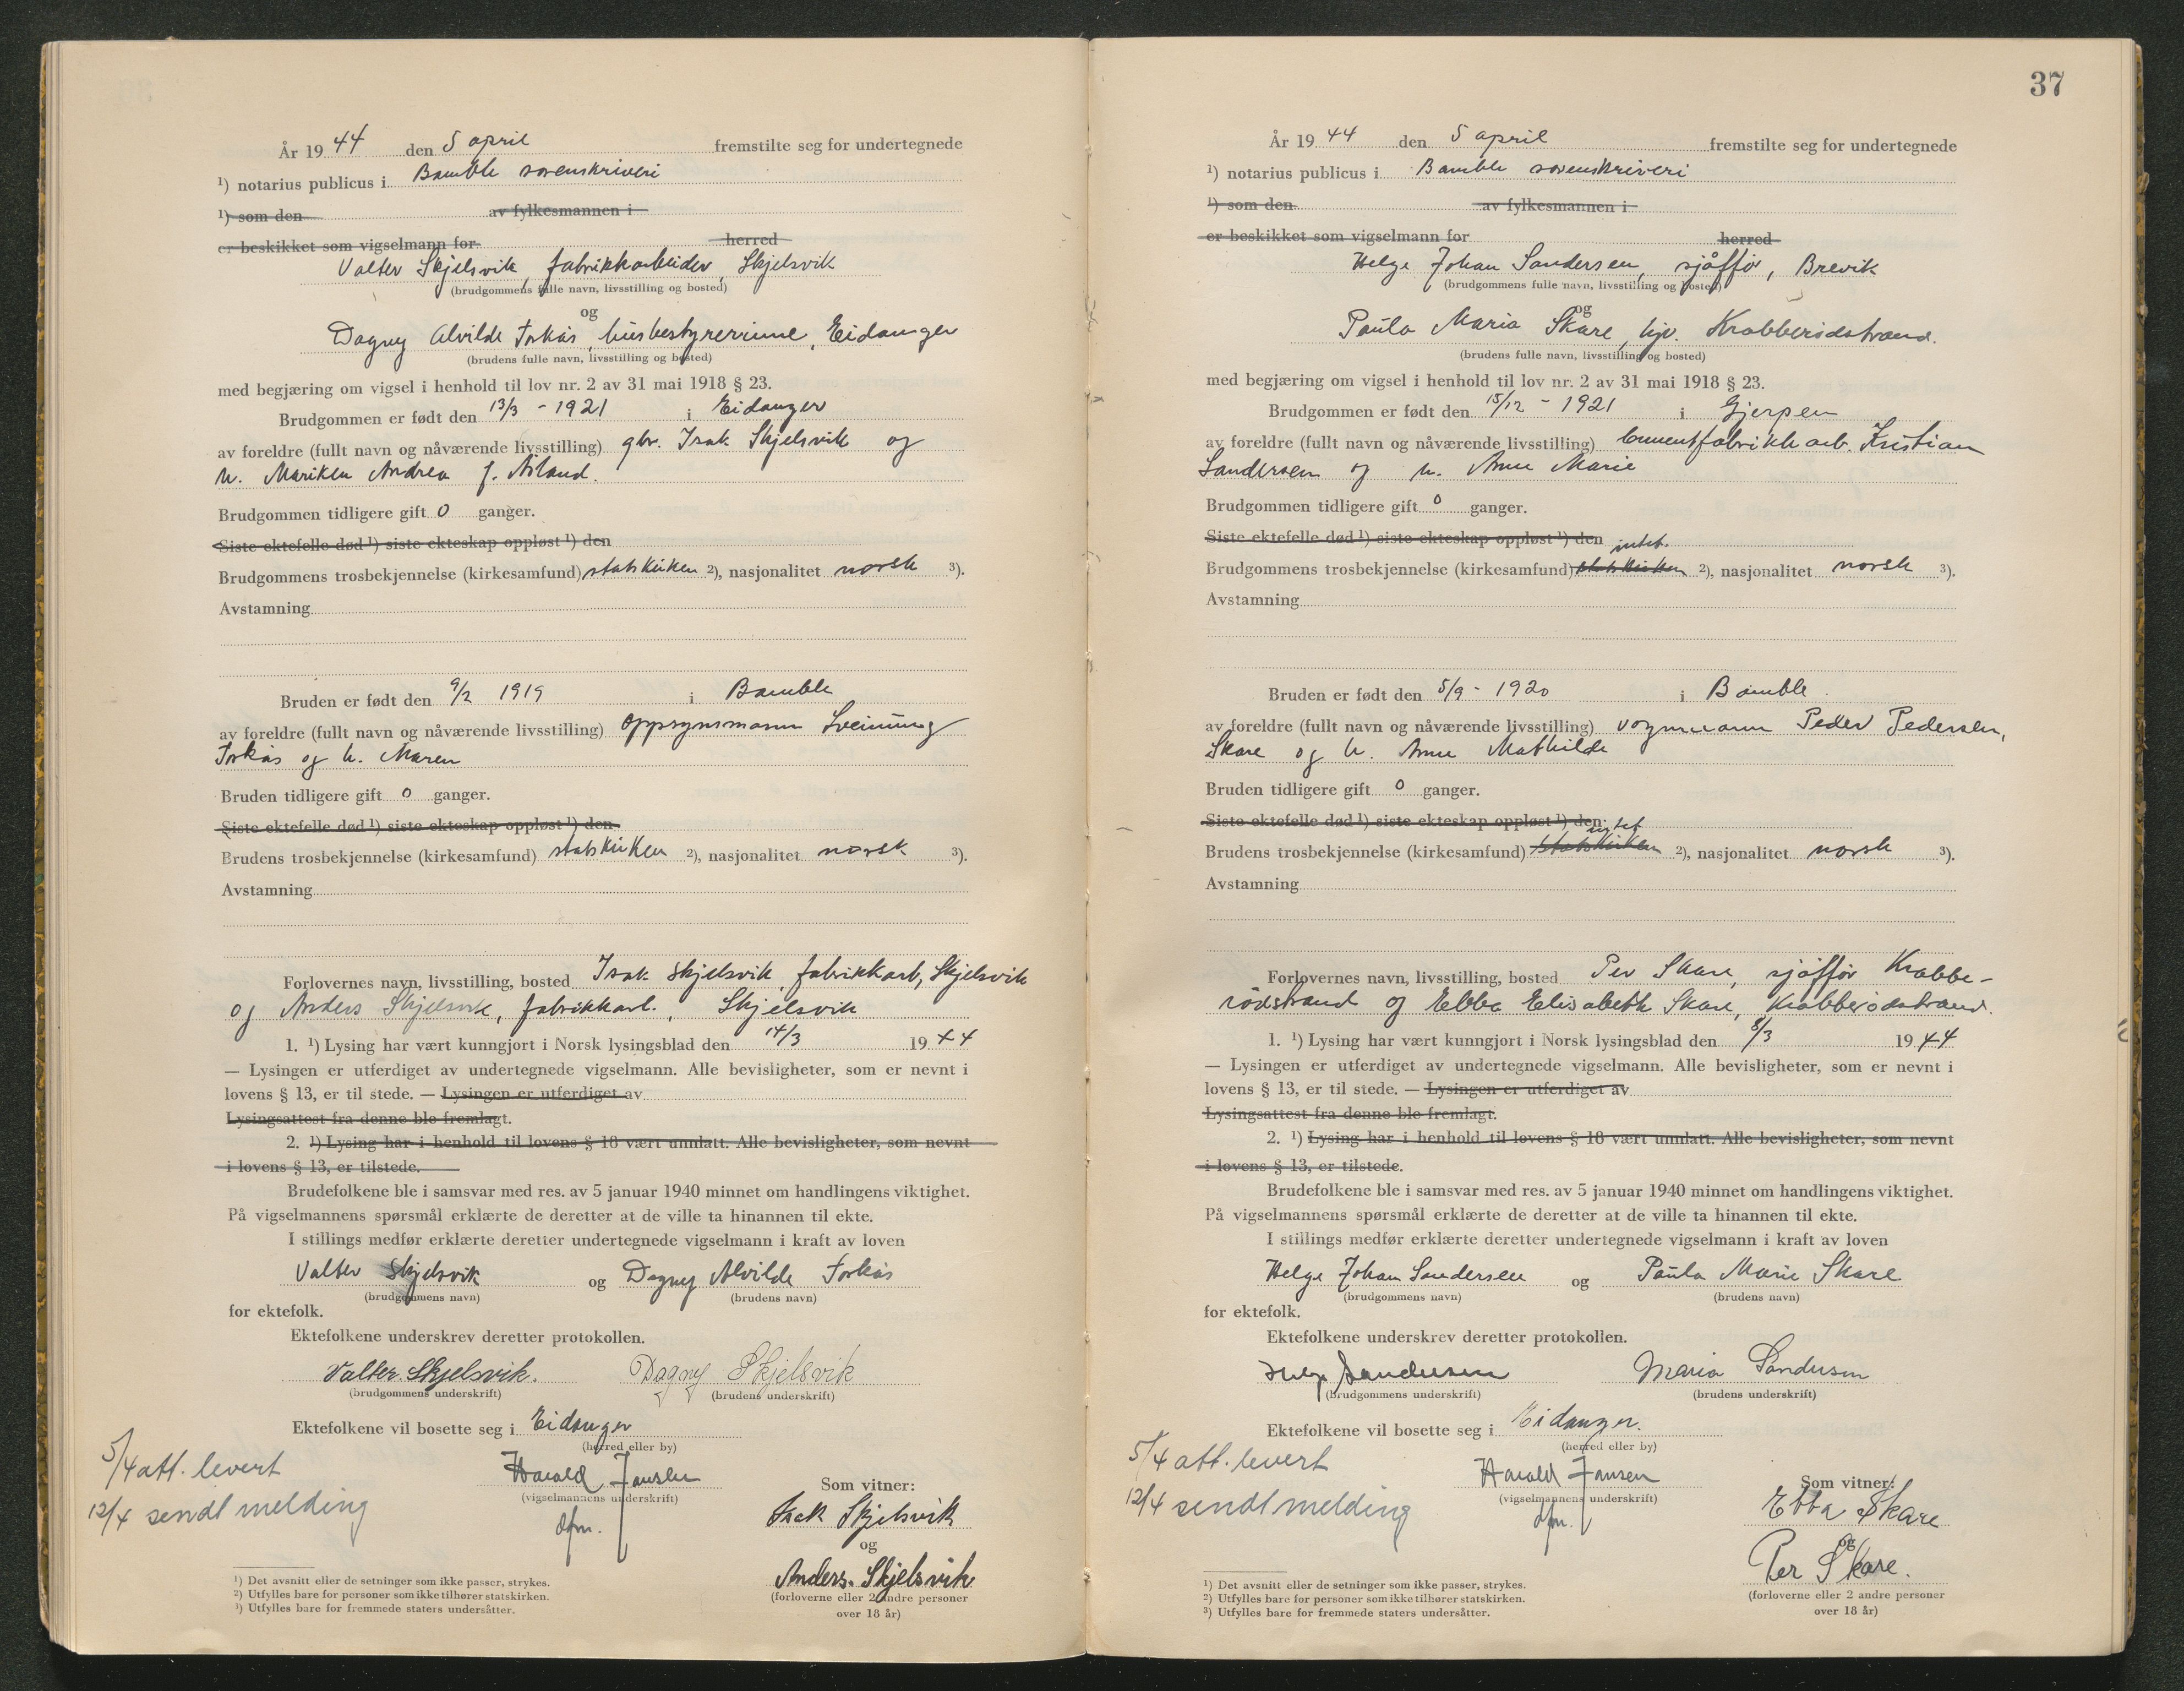 År 1944 den 5 april fremstilte seg for undertegnede
¹) notarius publicus i Bamble sorenskriveri
¹) som den av fylkesmannen i
er beskikket som vigselmann for herred
Valter Skjelsvik, fabrikkarbeider, Skjelsvik
(brudgommens fulle navn, livsstilling og bosted)
og
Dagny Alvilde Forkås, husbestyrerinne, Eidanger
(brudens fulle navn, livsstilling og bosted)
med begjæring om vigsel i henhold til lov nr. 2 av 31 mai 1918 § 23.
Brudgommen er født den 13/3 - 1921 i Eidanger
av foreldre (fullt navn og nåværende livsstilling) gbr. Isak Skjelsvik og
h. Mariken Andrea f. Åsland.
Brudgommen tidligere gift 0 ganger.
Siste ektefelle død ¹) siste ekteskap oppløst ¹) den
Brudgommens trosbekjennelse (kirkesamfund) statskirken ²), nasjonalitet norsk ³).
Avstamning
Bruden er født den 9/2 1919 i Bamble
av foreldre (fullt navn og nåværende livsstilling) oppsynsmann Sveinung
Forkås og h. Maren
Bruden tidligere gift 0 ganger.
Siste ektefelle død ¹) siste ekteskap oppløst ¹) den
Brudens trosbekjennelse (kirkesamfund) statskirken ²), nasjonalitet norsk ³).
Avstamning
Forlovernes navn, livsstilling, bosted Isak Skjelsvik, fabrikkarb, Skjelsvik
og Anders Skjelsvik, fabrikkarb., Skjelsvik
1. ¹) Lysing har vært kunngjort i Norsk lysingsblad den 14/3 1944
— Lysingen er utferdiget av undertegnede vigselmann. Alle bevisligheter, som er nevnt i
lovens § 13, er til stede. — Lysingen er utferdiget av
Lysingsattest fra denne ble fremlagt.
2. ¹) Lysing har i henhold til lovens § 18 vært unnlatt. Alle bevisligheter, som nevnt
i lovens § 13, er tilstede.
Brudefolkene ble i samsvar med res. av 5 januar 1940 minnet om handlingens viktighet.
På vigselmannens spørsmål erklærte de deretter at de ville ta hinannen til ekte.
I stillings medfør erklærte deretter undertegnede vigselmann i kraft av loven
Valter Skjelsvik og Dagny Alvilde Forkås
(brudgommens navn) (brudens navn)
for ektefolk.
Ektefolkene underskrev deretter protokollen.
Valter Skjelsvik. Dagny Skjelsvik
(brudgommens underskrift) (brudens underskrift)
Ektefolkene vil bosette seg i Eidanger
(herred eller by)
5/4 att. levert
12/4 sendt melding
Harald Jansen
(vigselmannens underskrift)
dfm.
Som vitner:
Isak Skjelsvik
og
Anders Skjelsvik
(forloverne eller 2 andre personer
over 18 år)
¹) Det avsnitt eller de setninger som ikke passer, strykes.
²) Utfylles bare for personer som ikke tilhører statskirken.
³) Utfylles bare for fremmede staters undersåtter.
37
År 1944 den 5 april fremstilte seg for undertegnede
¹) notarius publicus i Bamble sorenskriveri
¹) som den av fylkesmannen i
er beskikket som vigselmann for herred
Helge Johan Sandersen, sjåffør, Brevik
(brudgommens fulle navn, livsstilling og bosted)
og
Paula Maria Skare, hjv. Krabberødstrand.
(brudens fulle navn, livsstilling og bosted)
med begjæring om vigsel i henhold til lov nr. 2 av 31 mai 1918 § 23.
Brudgommen er født den 15/12 - 1921 i Gjerpen
av foreldre (fullt navn og nåværende livsstilling) cementfabrikkarb. Kristian
Sandersen og h. Anne Marie
Brudgommen tidligere gift 0 ganger.
Siste ektefelle død ¹) siste ekteskap oppløst ¹) den
intet.
Brudgommens trosbekjennelse (kirkesamfund) statskirken ²), nasjonalitet norsk ³).
Avstamning
Bruden er født den 5/9 - 1920 i Bamble.
av foreldre (fullt navn og nåværende livsstilling) vognmann Peder Pedersen,
Skare og h. Anne Mathilde
Bruden tidligere gift 0 ganger.
Siste ektefelle død ¹) siste ekteskap oppløst ¹) den
intet
Brudens trosbekjennelse (kirkesamfund) statskirken ²), nasjonalitet norsk ³).
Avstamning
Forlovernes navn, livsstilling, bosted Per Skare, sjåffør Krabbe-
rødstrand og Ebba Elisabeth Skare, Krabberødstrand.
1. ¹) Lysing har vært kunngjort i Norsk lysingsblad den 8/3 1944
— Lysingen er utferdiget av undertegnede vigselmann. Alle bevisligheter, som er nevnt i
lovens § 13, er til stede. — Lysingen er utferdiget av
Lysingsattest fra denne ble fremlagt.
2. ¹) Lysing har i henhold til lovens § 18 vært unnlatt. Alle bevisligheter, som nevnt
i lovens § 13, er tilstede.
Brudefolkene ble i samsvar med res. av 5 januar 1940 minnet om handlingens viktighet.
På vigselmannens spørsmål erklærte de deretter at de ville ta hinannen til ekte.
I stillings medfør erklærte deretter undertegnede vigselmann i kraft av loven
Helge Johan Sandersen og Paula Marie Skare
(brudgommens navn) (brudens navn)
for ektefolk.
Ektefolkene underskrev deretter protokollen.
Helge Sandersen Maria Sandersen
(brudgommens underskrift) (brudens underskrift)
Ektefolkene vil bosette seg i Eidanger.
(herred eller by)
5/4 att. levert
12/4 sendt melding
Harald Jansen
(vigselmannens underskrift)
dfm.
Som vitner:
Ebba Skare
og
Per Skare.
(forloverne eller 2 andre personer
over 18 år)
¹) Det avsnitt eller de setninger som ikke passer, strykes.
²) Utfylles bare for personer som ikke tilhører statskirken.
³) Utfylles bare for fremmede staters undersåtter.